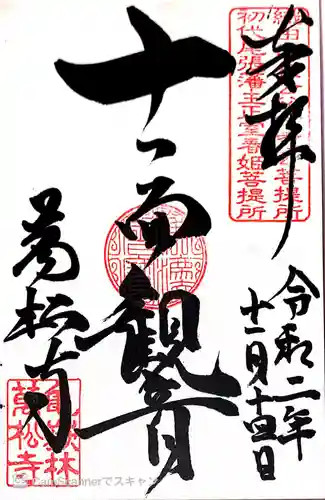 奉拝
織田
初代尾張藩主正室春姫菩提所
令和二年
十一月十四日
十一面観音
萬松寺
亀嶽林
萬松寺
CamScannerでスキャン